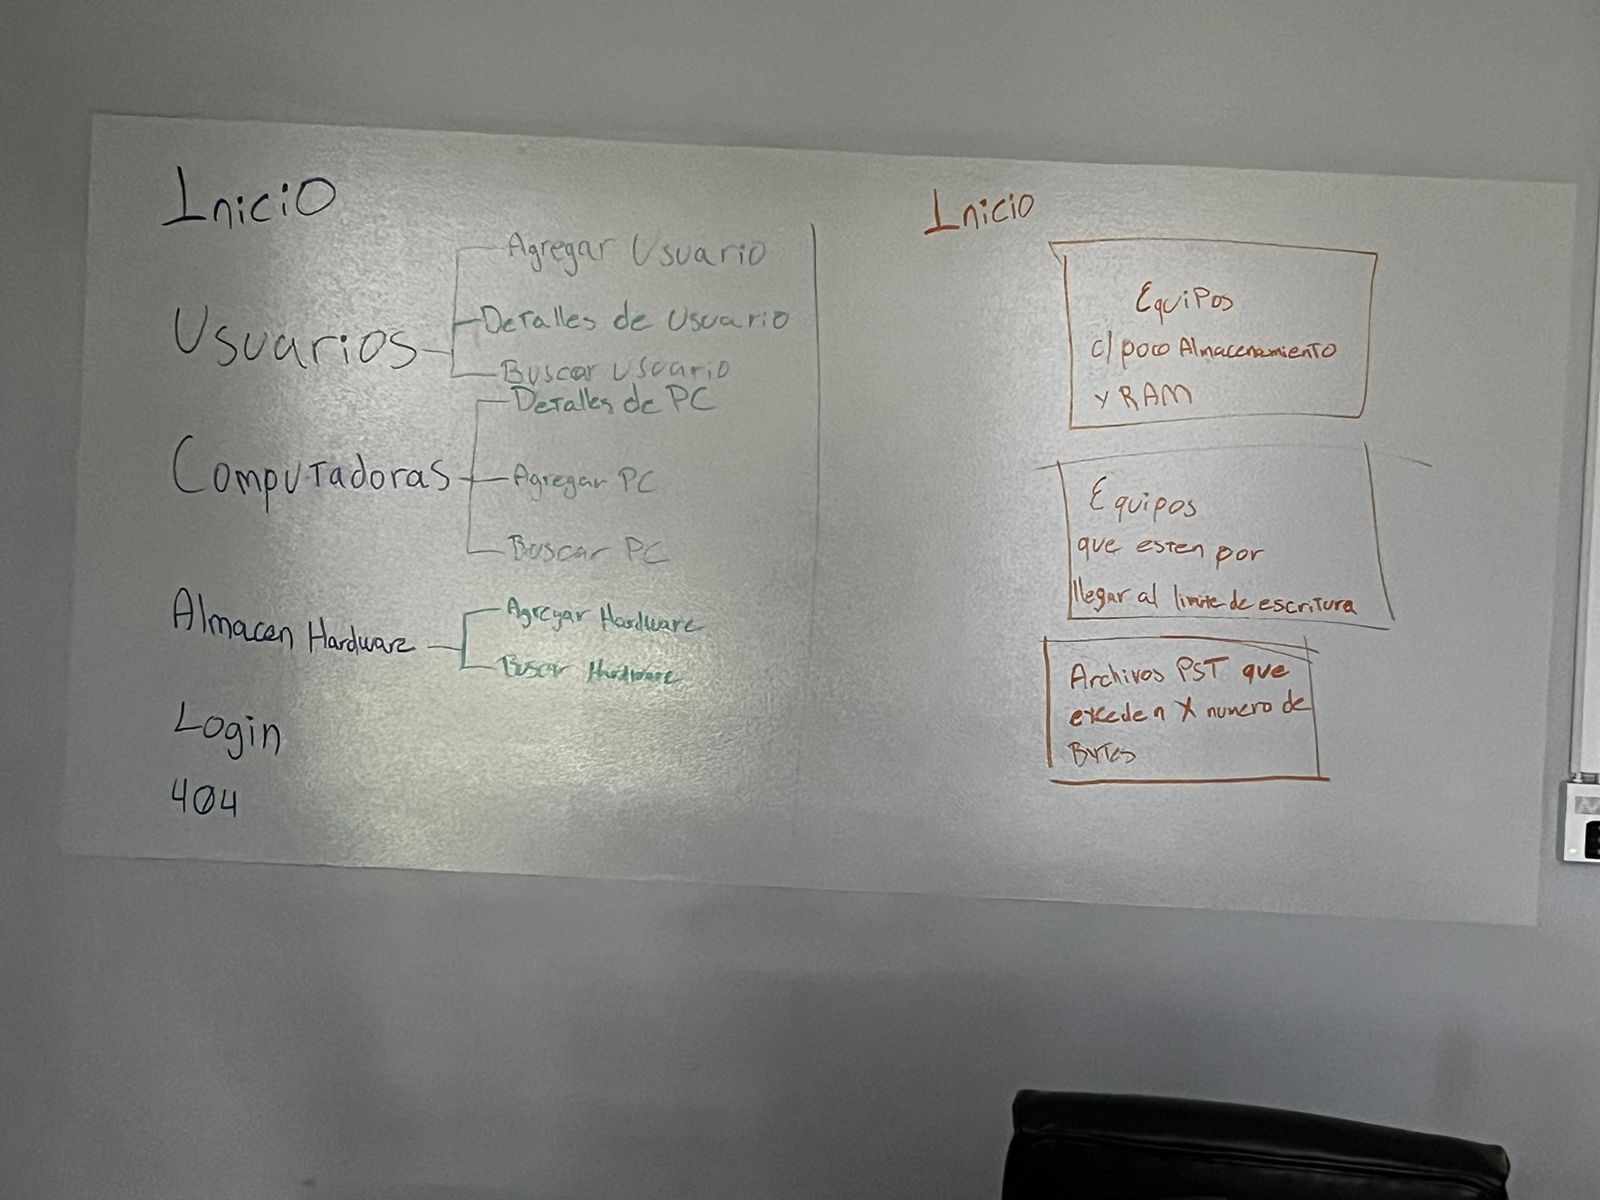 Inicio
Usuarios
Agregar Usuario
Detalles de Usuario
Buscar Usuario
Computadoras
Detalles de PC
Agregar PC
Buscar PC
Almacen Hardware
Agregar Hardware
Buscar Hardware
Login
404
Inicio
Equipos
c/ poco Almacenamiento
y RAM
Equipos
que esten por
llegar al limite de escritura
Archivos PST que
exceden X numero de
Bytes